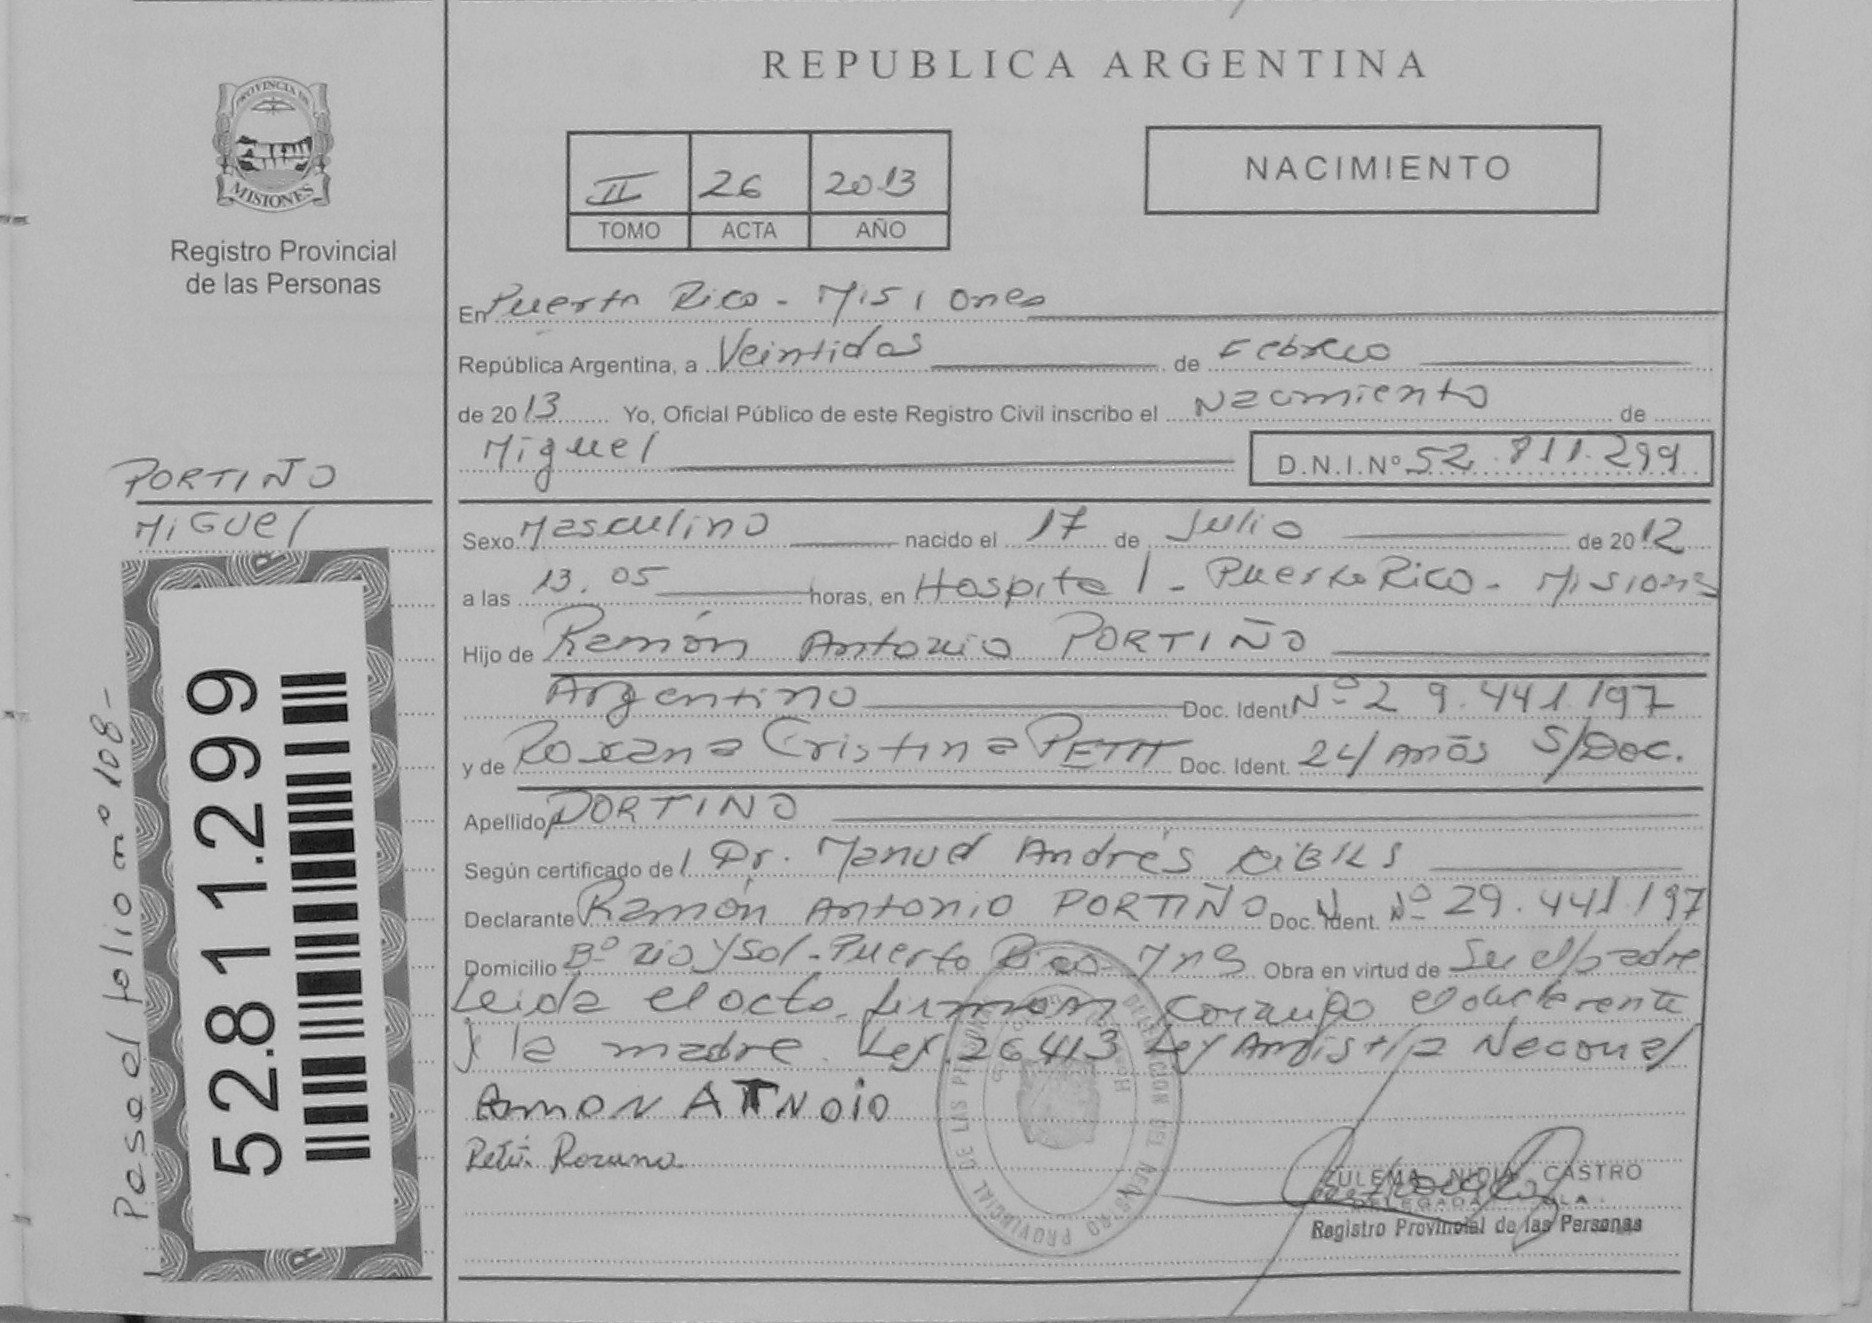 REPUBLICA ARGENTINA
PROVINCIA DE
MISIONES
Registro Provincial
de las Personas
II 26 2013
TOMO ACTA AÑO
NACIMIENTO
En Puerto Rico - Misiones
República Argentina, a Veintidos de Febrero
de 2013 Yo, Oficial Público de este Registro Civil inscribo el Nacimiento de
Miguel D.N.I.Nº 52.811.299
PORTIÑO
MIGUEl
Sexo Masculino nacido el 17 de Julio de 2012
a las 13.05 horas, en Hospital - Puerto Rico - Misiones
Hijo de Ramón Antonio PORTIÑO
Argentino Doc. Ident Nº 29.441.197
y de Roxana Cristina PETIT Doc. Ident. 24/años S/Doc.
Apellido PORTIÑO
Según certificado de l Dr. Manuel Andrés CIBILS
Declarante Ramón Antonio PORTIÑO Doc. Ident. Nº 29.441.197
Domicilio Bº Rio y Sol - Puerto Rico - Mns Obra en virtud de Ser el padre
Leida el acta, firman conmigo el declarente
y la madre. Ley. 26413 Ley Amnistia Nacional
AmON ATNOiO
Petit Roxana
52.811.299
Pasa al folio nº 108-
REGISTRO PROVINCIAL DE LAS PERSONAS
ZULEMA NIDIA CASTRO
DELEGADA
Registro Provincial de las Personas